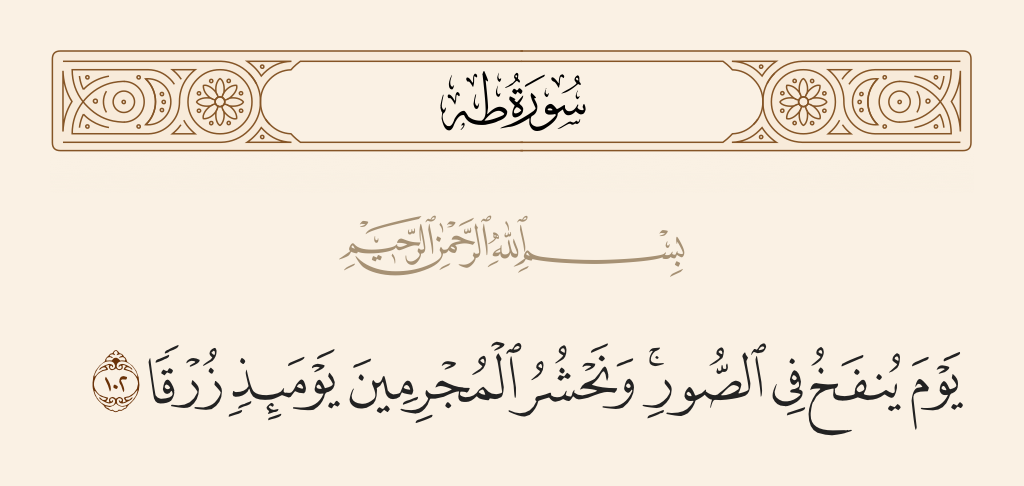 سُورَةُ طه
بِسْمِ ٱللَّهِ ٱلرَّحْمَٰنِ ٱلرَّحِيمِ
يَوْمَ يُنفَخُ فِى ٱلصُّورِ ۚ وَنَحْشُرُ ٱلْمُجْرِمِينَ يَوْمَئِذٍ زُرْقًا ١٠٢